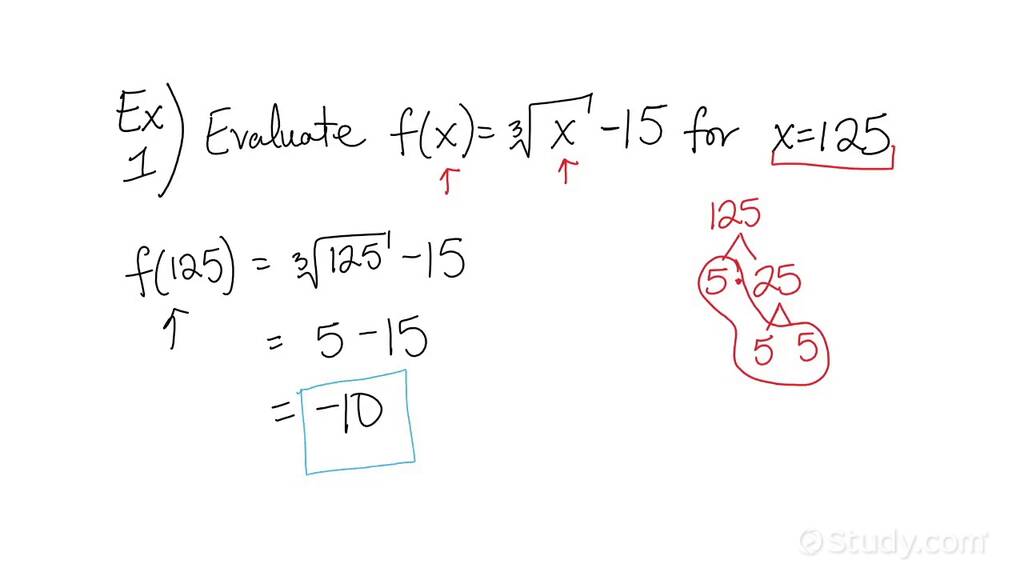 Ex 1) Evaluate f(x) = ∛x - 15 for x=125
f(125) = ∛125 - 15
= 5 - 15
= -10
125
5 · 25
5 5
Study.com